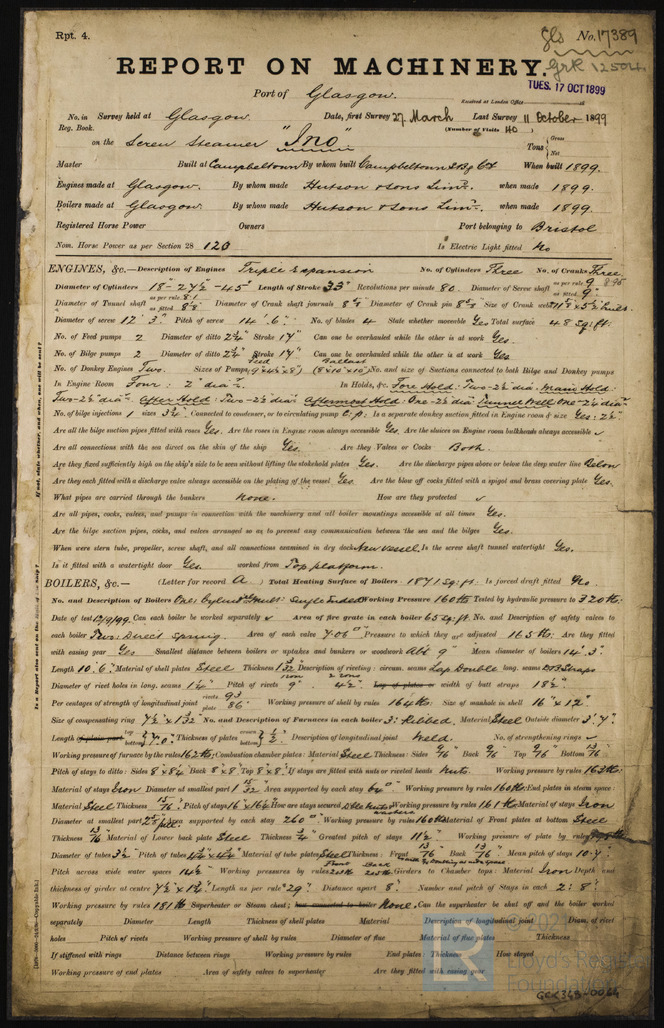 Rpt. 4.
Gls No. 17389
Grk 12504
REPORT ON MACHINERY.
TUES. 17 OCT 1899
Port of Glasgow.
Received at London Office
No. in Survey held at Glasgow. Date, first Survey 27 March Last Survey 11 October 1899
Reg. Book. (Number of Visits 40)
on the Screw Steamer "Ino" Tons Gross Net
Master Built at Campbeltown By whom built Campbeltown When built 1899.
Engines made at Glasgow. By whom made Hutson & Sons Limd. when made 1899.
Boilers made at Glasgow. By whom made Hutson & Sons Limd. when made 1899.
Registered Horse Power Owners Port belonging to Bristol
Nom. Horse Power as per Section 28 120 Is Electric Light fitted No
ENGINES, &c.—Description of Engines Triple Expansion No. of Cylinders Three No. of Cranks Three
Diameter of Cylinders 18"-27½"-45" Length of Stroke 33" Revolutions per minute 80. Diameter of Screw shaft as per rule 8.95 as fitted 9"
Diameter of Tunnel shaft as per rule 8.1 as fitted Diameter of Crank shaft journals Diameter of Crank pin Size of Crank webs
Diameter of screw 12' 3" Pitch of screw 14' 6" No. of blades 4 State whether moveable Yes Total surface 48 sq: ft:
No. of Feed pumps 2 Diameter of ditto 2¾" Stroke 17" Can one be overhauled while the other is at work Yes.
No. of Bilge pumps 2 Diameter of ditto 2¾" Stroke 17" Can one be overhauled while the other is at work Yes
No. of Donkey Engines Two. Sizes of Pumps Feed Ballast No. and size of Suctions connected to both Bilge and Donkey pumps
In Engine Room Four: 2" dia. In Holds, &c. Fore Hold: Two-2½" dia: Main Hold:
Two-2½" dia: After Hold: Two-2½" dia: Aftermost Hold: One-2½" dia: Tunnel Well One-2½" dia:
No. of bilge injections 1 sizes Connected to condenser, or to circulating pump C.P. Is a separate donkey suction fitted in Engine room & size Yes: 2½"
Are all the bilge suction pipes fitted with roses Yes. Are the roses in Engine room always accessible Yes. Are the sluices on Engine room bulkheads always accessible ✓
Are all connections with the sea direct on the skin of the ship Yes. Are they Valves or Cocks Both.
Are they fixed sufficiently high on the ship's side to be seen without lifting the stokehold plates Yes. Are the discharge pipes above or below the deep water line Below
Are they each fitted with a discharge valve always accessible on the plating of the vessel Yes. Are the blow off cocks fitted with spigot and brass covering plate Yes.
What pipes are carried through the bunkers None. How are they protected ✓
Are all pipes, cocks, valves, and pumps in connection with the machinery and all boiler mountings accessible at all times Yes.
Are the bilge suction pipes, cocks, and valves arranged so as to prevent any communication between the sea and the bilges Yes.
When were stern tube, propeller, screw shaft, and all connections examined in dry dock New vessel. Is the screw shaft tunnel watertight Yes.
Is it fitted with a watertight door Yes. worked from Top platform.
BOILERS, &c.— (Letter for record A.) Total Heating Surface of Boilers 1871 sq: ft: Is forced draft fitted Yes.
No. and Description of Boilers One: Cylind: Mult: Single Ended Working Pressure 160 lb Tested by hydraulic pressure to 320 lb:
Date of test Can each boiler be worked separately ✓ Area of fire grate in each boiler 65 sq: ft No. and Description of safety valves to
each boiler Two: Direct spring. Area of each valve 7.06 Pressure to which they are adjusted 165 lb: Are they fitted
with easing gear Yes Smallest distance between boilers or uptakes and bunkers or woodwork Abt 9" Mean diameter of boilers 14' 3"
Length 10' 6" Material of shell plates Steel Thickness Description of riveting: circum. seams Lap Double long. seams Straps
Diameter of rivet holes in long. seams 1¼" Pitch of rivets 9" 4½" width of butt straps 18½"
Per centages of strength of longitudinal joint rivets 93 plate 86 Working pressure of shell by rules 164 lb: Size of manhole in shell 16" x 12"
Size of compensating ring No. and Description of Furnaces in each boiler 3: Ribbed. Material Steel Outside diameter 3' 7"
Length 7' 0" Thickness of plates crown bottom ½" Description of longitudinal joint Weld. No. of strengthening rings ✓
Working pressure of furnace by the rules 162 lb: Combustion chamber plates: Material Steel Thickness: Sides 9/16" Back 9/16" Top 9/16" Bottom 13/16"
Pitch of stays to ditto: Sides Back 8" x 8" Top If stays are fitted with nuts or riveted heads Nuts. Working pressure by rules 163 lb:
Material of stays Iron Diameter at smallest part Area supported by each stay 64" Working pressure by rules 160 lb: End plates in steam space:
Material Steel Thickness 15/16" Pitch of stays How are stays secured Dble nuts washers Working pressure by rules 161 lb Material of stays Iron
Diameter at smallest part Area supported by each stay 260" Working pressure by rules 160 lb Material of Front plates at bottom Steel
Thickness 13/16" Material of Lower back plate Steel Thickness ¾" Greatest pitch of stays 11½" Working pressure of plate by rules
Diameter of tubes 3½" Pitch of tubes Material of tube plates Steel Thickness: Front 13/16" Back 13/16" Mean pitch of stays 10.7"
Pitch across wide water spaces 14½" Working pressures by rules Girders to Chamber tops: Material Iron Depth and
thickness of girder at centre 7½" x 1¾" Length as per rule 29" Distance apart 8" Number and pitch of Stays in each 2: 8"
Working pressure by rules 181 lb Superheater or Steam chest; how connected to boiler None. Can the superheater be shut off and the boiler worked
separately Diameter Length Thickness of shell plates Material Description of longitudinal joint Diam. of rivet
holes Pitch of rivets Working pressure of shell by rules Diameter of flue Material of flue plates Thickness
If stiffened with rings Distance between rings Working pressure by rules End plates: Thickness How stayed
Working pressure of end plates Area of safety valves to superheater Are they fitted with easing gear
If not, state whether, and when, one will be sent?
Is a Report also sent on the Hull of the Ship?
LR
Lloyd's Register
Foundation